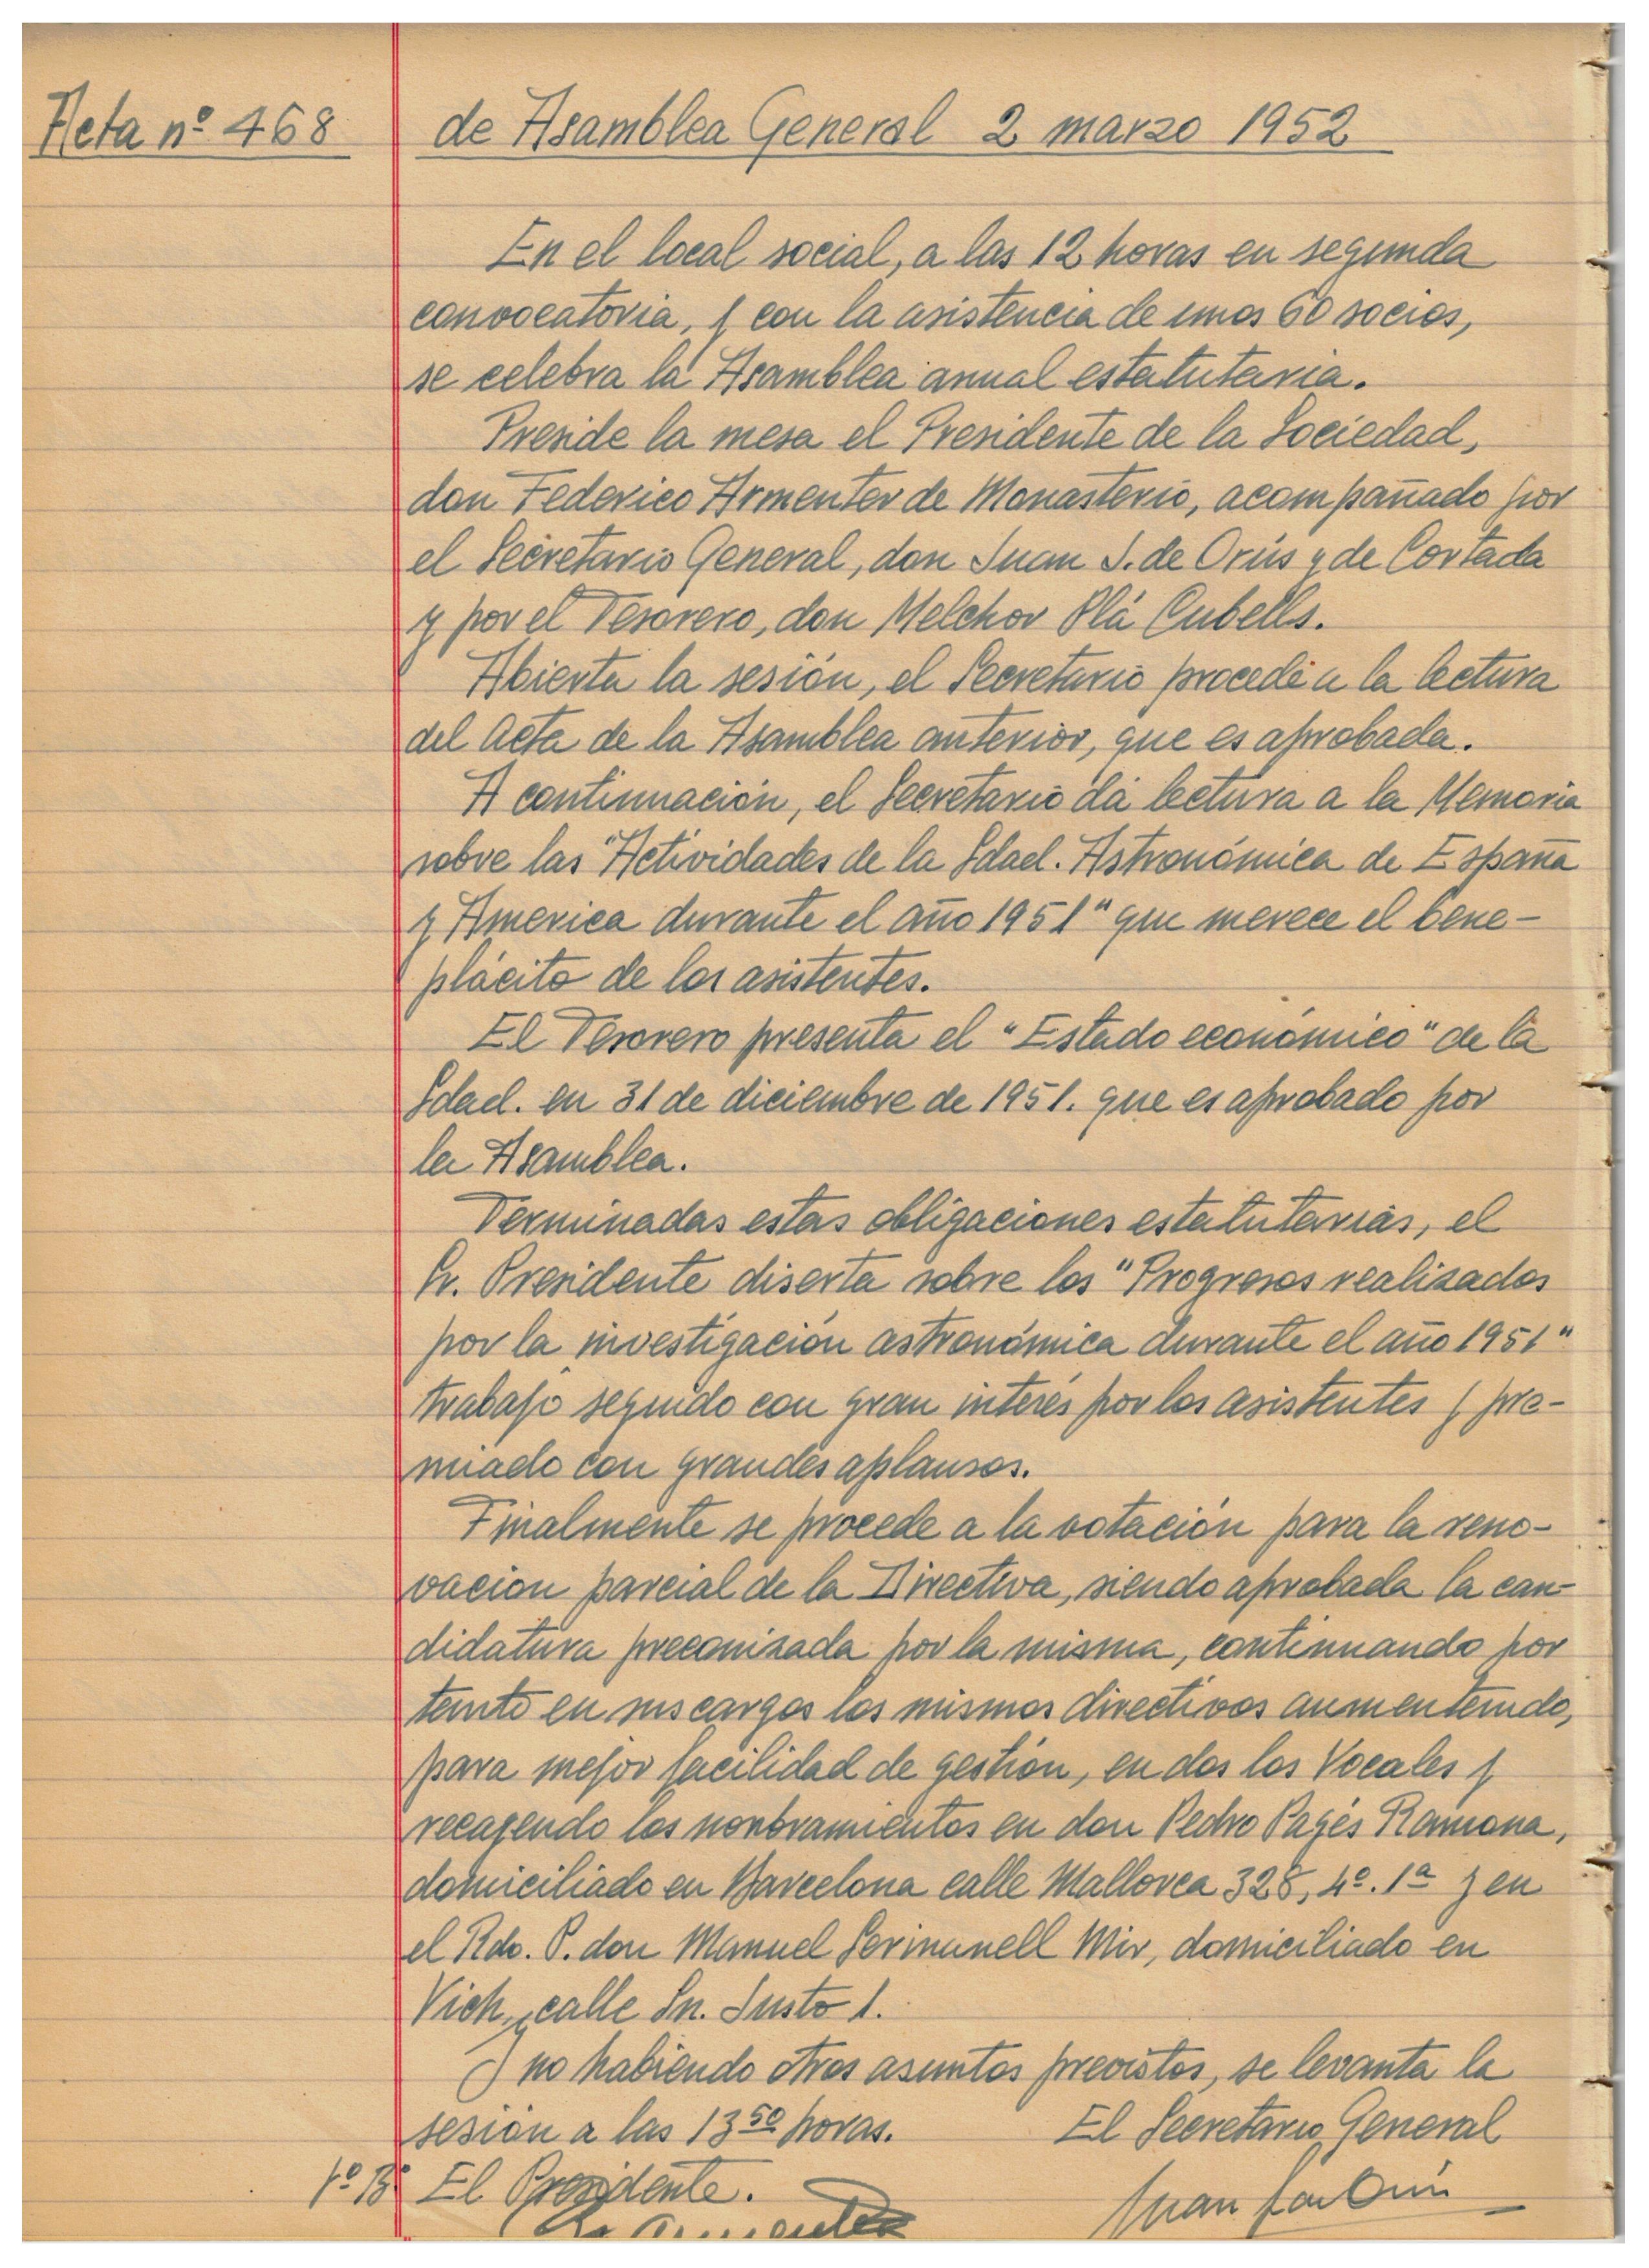 Acta nº 468 de Asamblea General 2 marzo 1952
En el local social, a las 12 horas en segunda
convocatoria, y con la asistencia de unos 60 socios,
se celebra la Asamblea anual estatutaria.
Preside la mesa el Presidente de la Sociedad,
don Federico Armenter de Monasterio, acompañado por
el Secretario General, don Juan J. de Orús y de Cortada
y por el Tesorero, don Melchor Plá Cubells.
Abierta la sesión, el Secretario procede a la lectura
del Acta de la Asamblea anterior, que es aprobada.
A continuación, el Secretario dá lectura a la Memoria
sobre las "Actividades de la Sdad. Astronómica de España
y America durante el año 1951" que merece el bene-
plácito de los asistentes.
El Tesorero presenta el "Estado económico" de la
Sdad. en 31 de diciembre de 1951. que es aprobado por
la Asamblea.
Terminadas estas obligaciones estatutarias, el
Sr. Presidente diserta sobre los "Progresos realizados
por la investigación astronómica durante el año 1951"
trabajo seguido con gran interés por los asistentes y pre-
miado con grandes aplausos.
Finalmente se procede a la votación para la reno-
vación parcial de la Directiva, siendo aprobada la can-
didatura preconizada por la misma, continuando por
tanto en sus cargos los mismos directivos aumentando,
para mejor facilidad de gestión, en dos los Vocales y
recayendo los nombramientos en don Pedro Pagés Ramona,
domiciliado en Barcelona calle Mallorca 328, 4º. 1ª y en
el Rdo. P. don Manuel Serinanell Mir, domiciliado en
Vich, calle Sn. Justo 1.
Y no habiendo otros asuntos previstos, se levanta la
sesión a las 13 50 horas. El Secretario General
Vº Bº El Presidente.
Juan J. de Orús